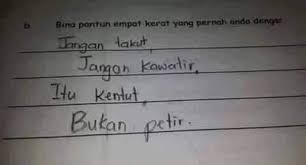 b. Bina pantun empat kerat yang pernah anda dengar
Jangan takut,
Jangan Kawatir,
Itu Kentut,
Bukan petir.